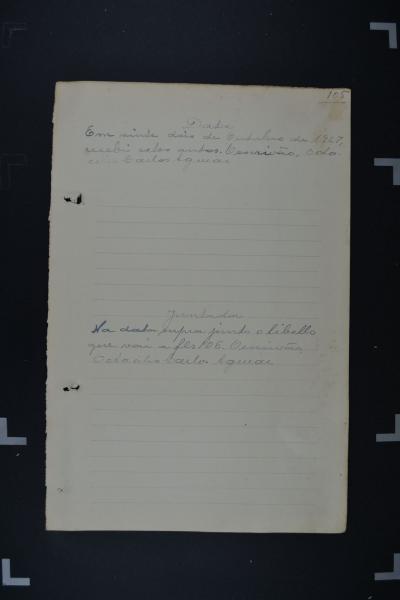 105
Data
Em vinte dois de Outubro de 1927,
recebi estes autos. O escrivão, Octa-
cilio Carlos Aguiar
Juntada
Na data supra junto o libello
que vai a fls 106. O escrivão,
Carlos Aguiar